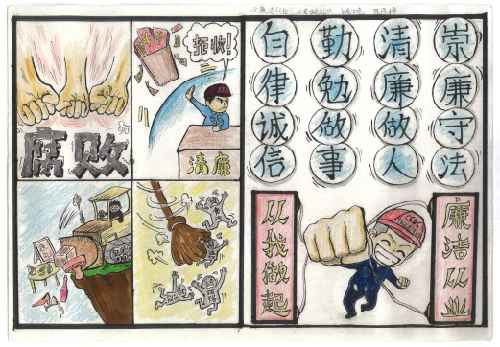 拒收!
腐败
清廉
崇廉守法
清廉做人
勤勉做事
自律诚信
从我做起
廉洁从业